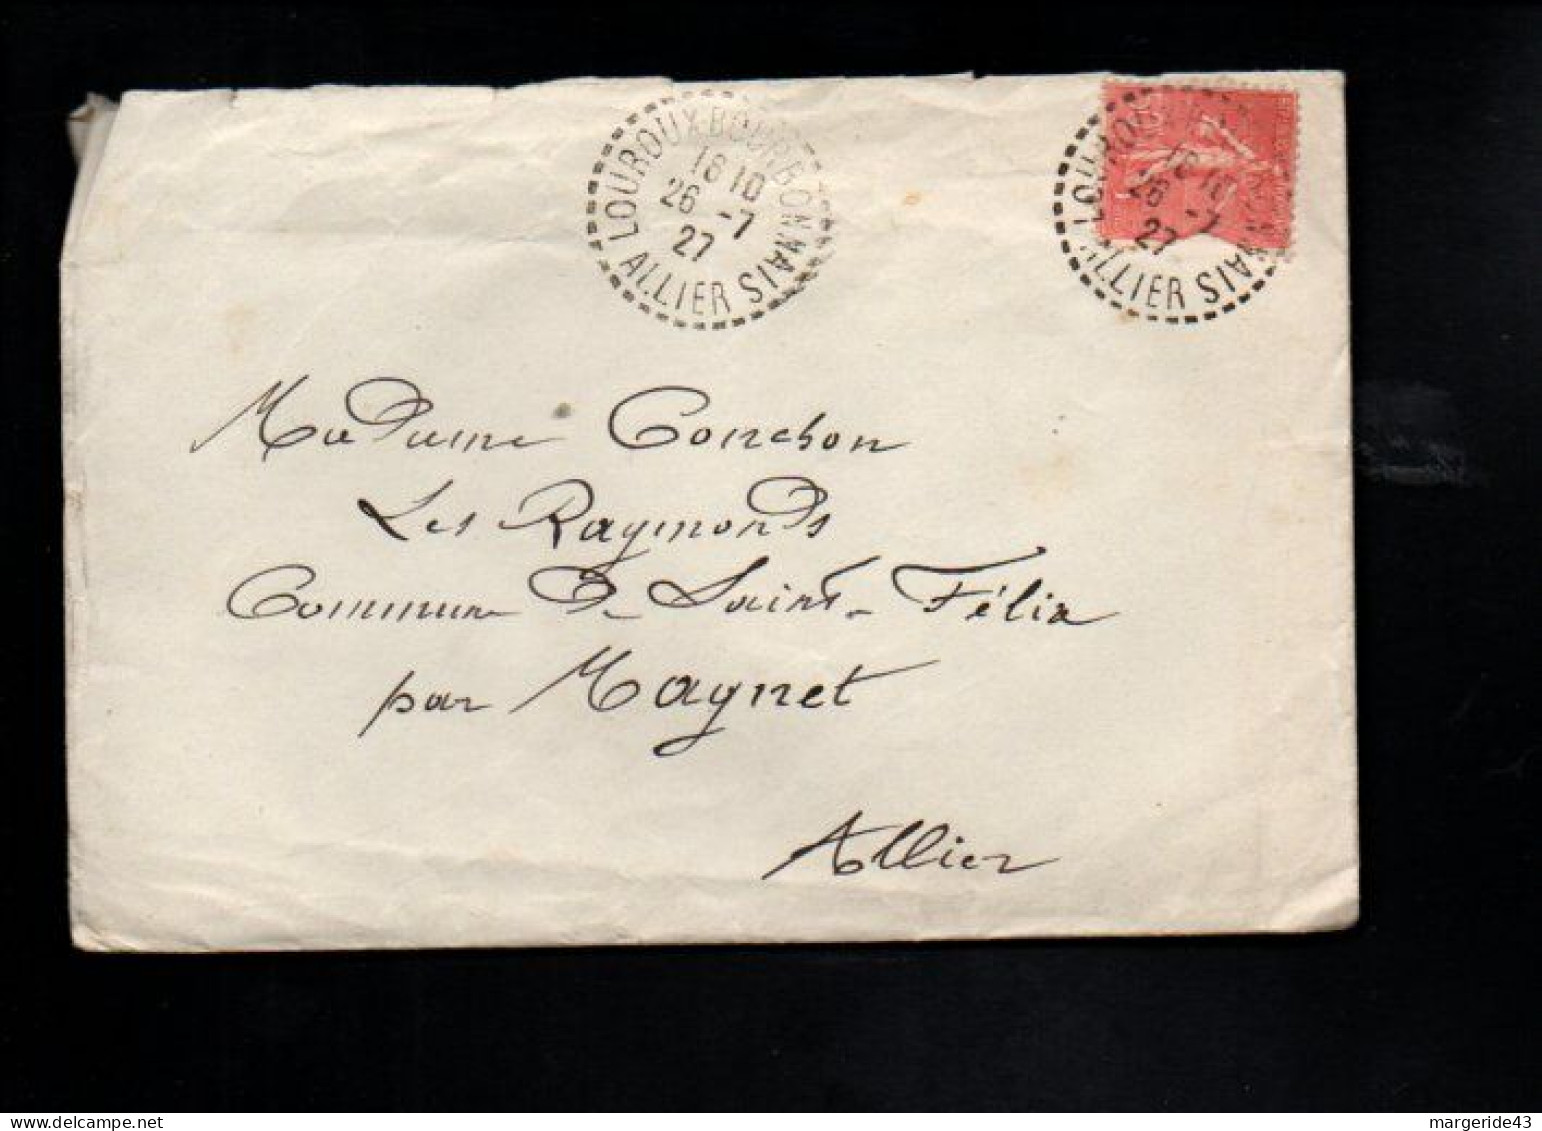 LOUROUX BOURBONNAIS
16 10
26 -7
27
ALLIER
LOUROUX BOURBONNAIS
16 10
26 -7
27
ALLIER
Madame Conchon
Les Raymonds
Commune de Saint-Félix
par Magnet
Allier
margeride43